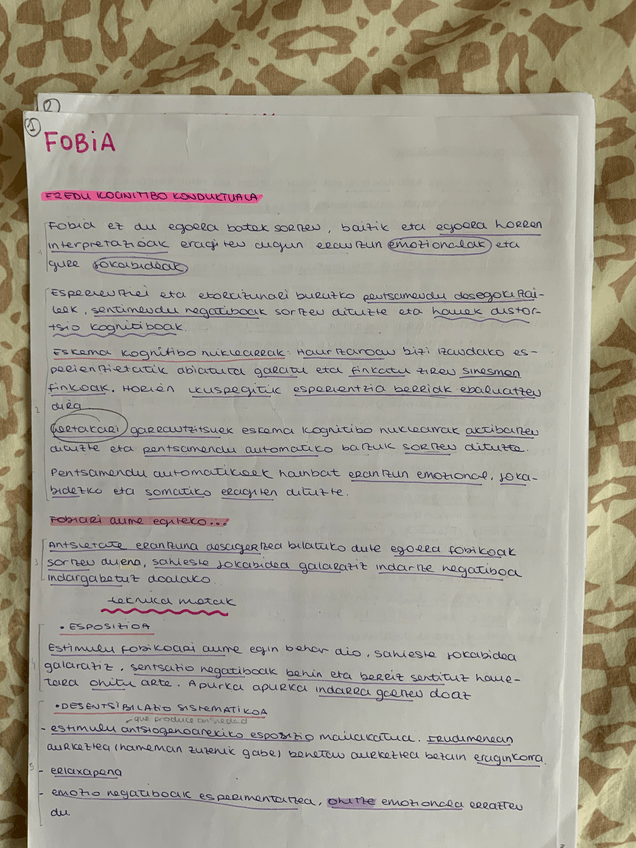 2
1
FOBIA
EREDU KOGNITIBO KONDUKTUALA
Fobia ez du egoera batek sortzen, baizik eta egoera horren
interpretazioak eragiten digun erantzun emozionalak eta
gure jokabideak
Esperientziei eta etorkizunari buruzko pentsamendu desegokitzai-
leek, sentimendu negatiboak sortzen dituzte eta hauek distor-
tsio kognitiboak.
Eskema kognitibo nuklearrak: Haurtzaroan bizi izandako es-
perientzietatik abiatuta garatu eta finkatu ziren sinesmen
finkoak. Horien ikuspegitik esperientzia berriak ebaluatzen
dira
2
Gertakari garrantzitsuek eskema kognitibo nuklearrak aktibatzen
dituzte eta pentsamendu automatiko batzuk sortzen dituzte.
Pentsamendu automatikoek hainbat erantzun emozional, joka-
bidezko eta somatiko eragiten dituzte.
Fobiari aurre egiteko...
Antsietate erantzuna desagertzea bilatuko dute egoera fobikoak
3 sortzen duena, saiheste jokabidea galaraziz indartze negatiboa
indargabetuz doalako.
teknika motak
• ESPOSIZIOA
Estimulu fobikoari aurre egin behar dio, saiheste jokabidea
4 galaraziz, sentsazio negatiboak behin eta berriz sentituz haue-
tara ohitu arte. Apurka apurka indarra galtzen doaz
• DESENTSIBILAZIO SISTEMATIKOA
que produce ansiedad
- estimulu antsiogenoarekiko esposizio mailakatua. Irudimenean
aurkeztea (harreman zuzenik gabe) benetan aurkeztea bezain eraginkorra.
5 - erlaxapena
- emozio negatiboak esperimentatzea, ohitze emozionala errazten
du.